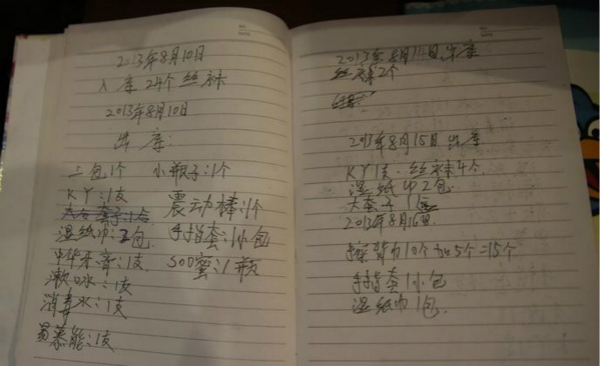 2013年8月10日
入库24个丝袜
2013年8月10日
出库:
二包1个 小瓶子:1个
KY:1支 震动棒:1个
湿纸巾:2包 手指套:1小包
中华牙膏:1支 SOD蜜:1瓶
漱口水:1支
消毒水:1支
曼慕能:1支
2013年8月14日 出库
丝袜2个
2013年8月15日 出库
KY1支.丝袜4个.
湿纸巾2包.
大套子1
2013年8月16日
擦背巾10个加5个=15个
手指套1小包
湿纸巾1包.